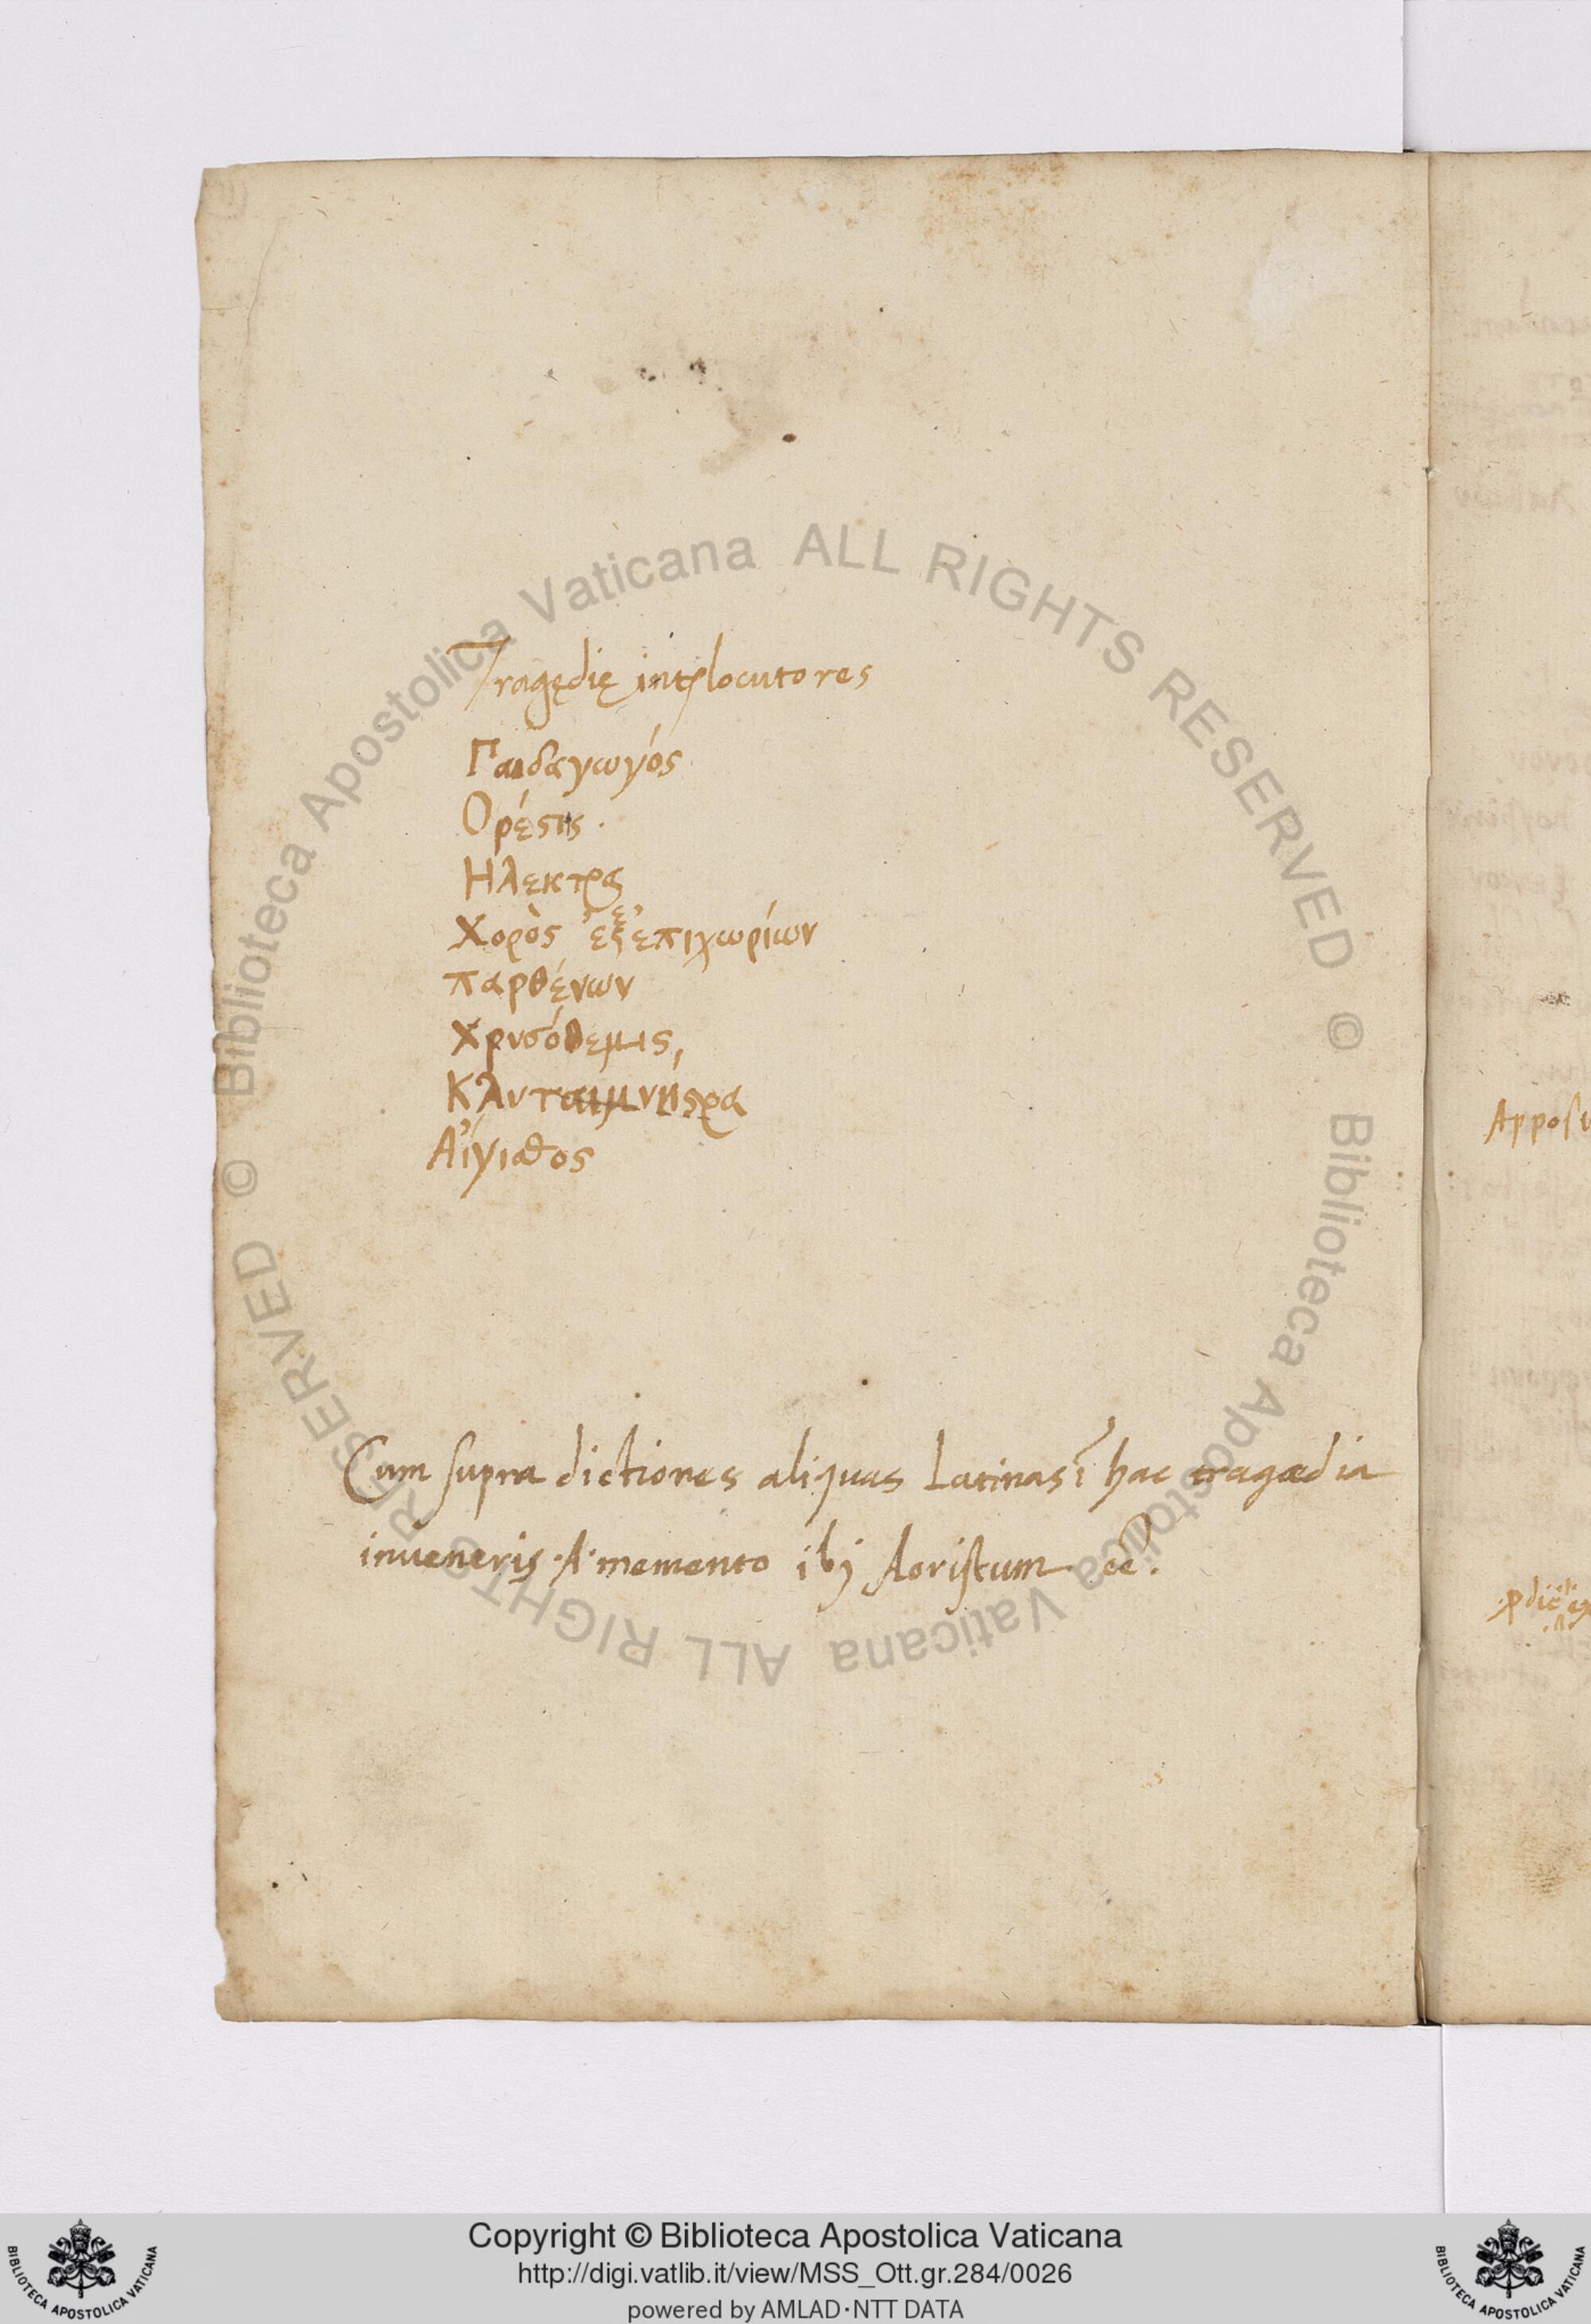 Tragędię intplocutores
Γαιδαγωγός
Ορέςτις
Ηλεκτρα
Χορὸς ἐξ ἐπιχωρίων
παρθένων
Χρυσόθεμις,
Κλυταιμνήςρα
Αἴγισθος
Cum supra dictiones aliquas Latinas ī hac tragædia
inveneris ·A· memento ibj Aoristum eē.
Apposi
© Biblioteca Apostolica Vaticana ALL RIGHTS RESERVED
© Biblioteca Apostolica Vaticana ALL RIGHTS RESERVED
BIBLIOTECA APOSTOLICA VATICANA
Copyright © Biblioteca Apostolica Vaticana
http://digi.vatlib.it/view/MSS_Ott.gr.284/0026
powered by AMLAD·NTT DATA
BIBLIOTECA APOSTOLICA VATICANA